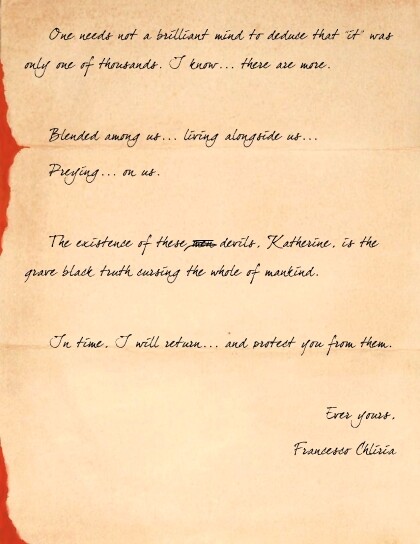 One needs not a brilliant mind to deduce that "it" was
only one of thousands. I know... there are more.
Blended among us... living alongside us...
Preying... on us.
The existence of these men devils, Katherine, is the
grave black truth cursing the whole of mankind.
In time, I will return... and protect you from them.
Ever yours,
Francesco Chliria